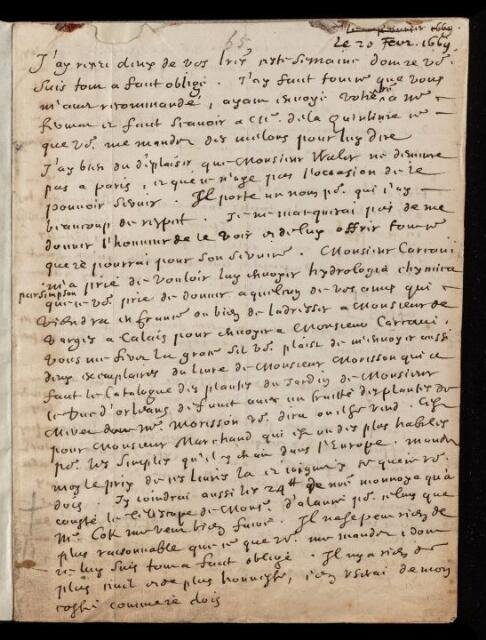 65
le 20 Fevr. 1669
J'ay receu deux de vos lres cette semaine dont je vs.
suis tout a faict obligé. J'ay faict tout ce que vous
m'aviez recommandé, ayant envoyé votre lre a Mr
et faict scavoir a Mr. de la Quintinie ce
que vs. me mandez des melons pour luy dire
J'ay bien du déplaisir que Monsieur Waler ne demeure
pas a paris, et que je n'aye pas l'occasion de le
pouvoir servir. Il porte un nom pr. qui j'ay
beaucoup de respect. Je ne manquerai pas de me
donner l'honneur de le voir et de luy offrir tout ce
que je pourrai pour son service. Monsieur Carcavi
m'a prié de vouloir luy envoyer hydrologia chymica
par Simpson
que je vs. prie de donner a quelqun de vos amis qui
viendra en france ou bien de l'adresser a Monsieur de
a Calais pour envoyer a Monsieur Carcavi.
vous me ferez la grace s'il vs. plaist de m'envoyer aussi
deux exemplaires du livre de Monsieur Morisson qui a
faict le Catalogue des plantes du Jardin de Monsieur
le Duc d'Orleans defunct avec un traitté des plantes de
Mr. Morisson vs. dira ou il se vend. C'est
pour Monsieur Marchand qui est un des plus habiles
pr. les simples qu'il y ayt dans l'Europe. mandez
moy le prix de ces livres la et ce que je vs.
dois. J'y joindrai aussi les 24 de nostre monnoye qu'a
cousté le de Monsr. d'alancé pr. celuy que
Mr. Cok me veut bien faire. Il n'y a rien de
plus raisonnable que ce que vs. me mandez, dont
je luy suis tout a faict obligé. Il n'y a rien de
plus civil et de plus honneste, j'en userai de mon
costé comme je dois